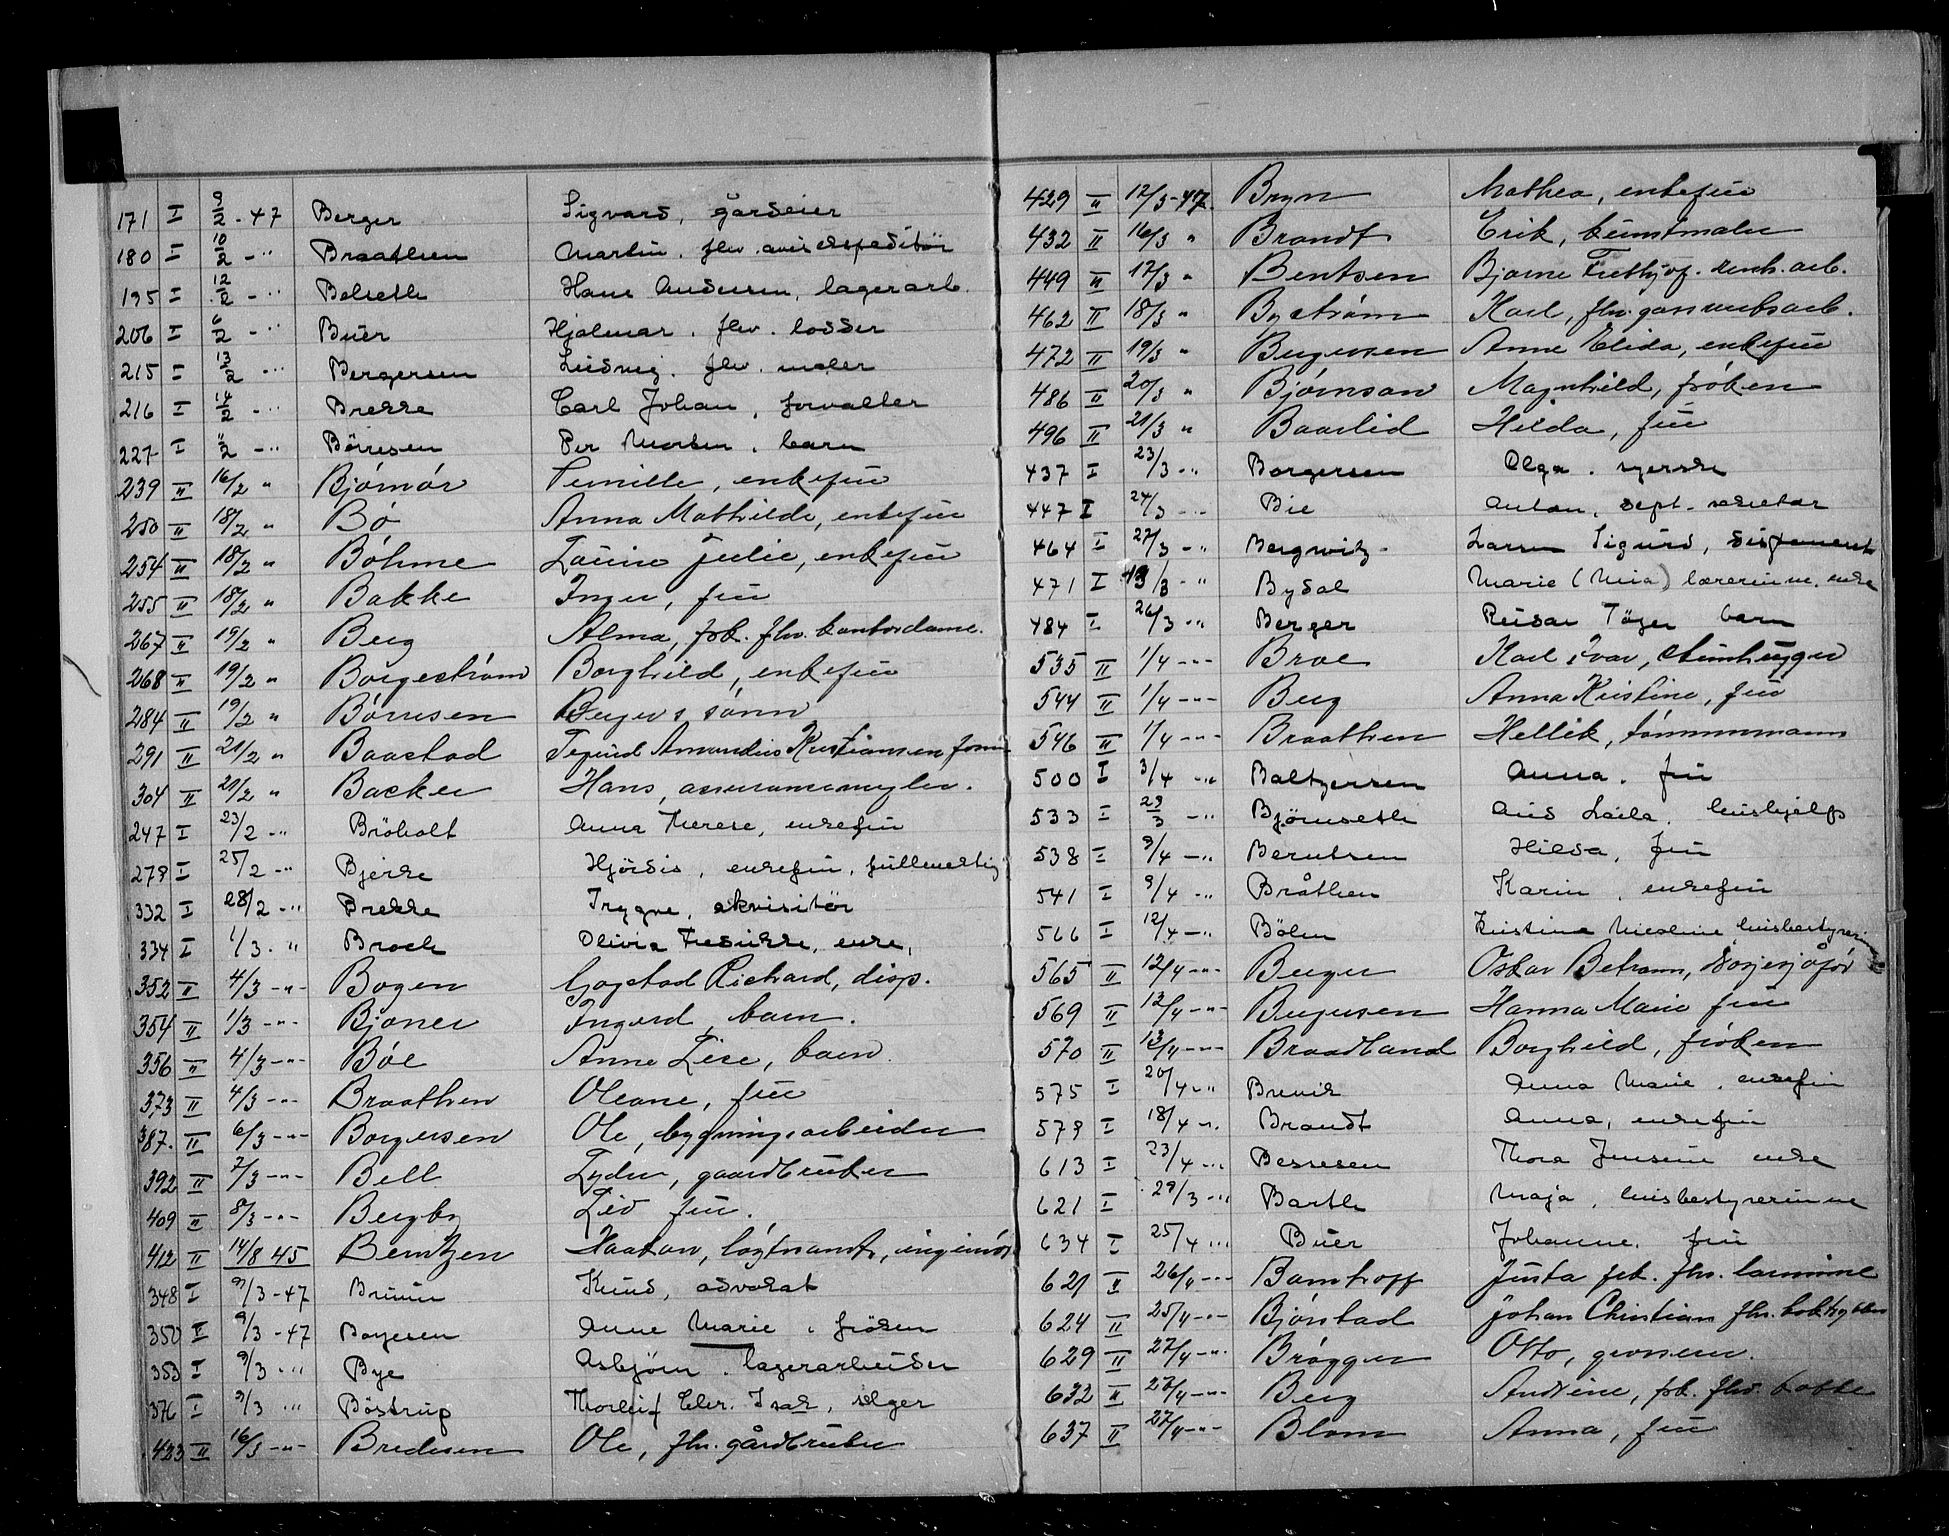 171 I 9/2 - 47 Berger Sigvard, gårdeier
180 I 10/2 - " Braathen Martin. fhv. avisekspeditør
195 I 12/2 - " Belseth Hans Andersen, lagerarb.
206 I 6/2 - " Buer Hjalmar. fhv. losser
215 I 13/2 - " Bergersen Ludvig. fhv. maler
216 I 14/2 - " Brekke Carl Johan, forvalter
227 I 11/2 - " Börresen Per Morten, barn
239 II 16/2 " Bjørnør Pernille, enkefru
250 II 18/2 " Bø Anna Mathilde, enkefru
254 II 18/2 " Bøhme Laura Julie, enkefru
255 II 18/2 " Bakke Inger, fru
267 II 19/2 " Berg Alma, frk. fhv. kontordame.
268 II 19/2 " Borgestrøm Borghild, enkefru
284 II 19/2 " Børresen Bergers sønn
291 II 21/2 " Baastad Amandus Kristiansen
304 II 21/2 " Backer Hans, assuransemegler.
247 I 23/2 - " Bröholt Anna Therese, enkefru
279 I 25/2 - " Bjerke Hjördis, enkefru, fullmektig
332 I 28/2 - " Brekke Trygve, akvisitör
334 I 1/3 - " Broch Olivia Fredrikke, enke,
352 II 4/3 - " - Bogen Gogstad Richard, disp.
354 II 1/3 - " - Bjoner Ingerd, barn.
356 II 4/3 - " - Bøe Anne Lise, barn.
373 II 4/3 - " - Braathen Oleane, fru
387. II 6/3 - " - Borgersen Ole, bygningsarbeider
392 II 7/3 - " - Bell Lyder, gaardbruker
409 II 8/3 - " - Bergby Liv fru.
412 II 14/8 45 Berntzen Haakon, løytnant, ingeniør
348 I 9/3 - 47 Bruun Knud, advokat
350 I 9/3 - 47 Boyesen Anne Marie, fröken
353 I 9/3 - " Bye Asbjörn. lagerarbeider
376 I 9/3 " Böstrup Thorleif Chr. Isak, selger
423 II 16/3 - " - Bredesen Ole, fhv. gårdbruker
429 II 12/3 - 47. Bryn Mathea, enkefru
432 II 16/3 " Brandt Erik, kunstmaler
449 II 17/3 " Bentsen Bjarne Fridtjof. renh. arb.
462 II 18/3 " Bystrøm Karl, fhv. gassverksarb.
472 II 19/3 " Bergersen Anne Elida, enkefru
486 II 20/3 " Bjørnson Magnhild, frøken
496 II 21/3 " Baarlid Hilda, fru
437 I 23/3 - " Borgersen Olga. syerske
447 I 24/3 - " Bie Anton, dept. sekretær
464 I 27/3 - " Bergwitz - Larsen Sigurd, disponent
471 I 3/3 - " Bydal Marie (Mia) lærerinne, enke
484 I 26/3 - " Berger Reidar Töger barn
535 II 1/4 - " - Broe Karl Ivar, stenhugger
544 II 1/4 - " - Berg Anna Kristine, fru
546 II 1/4 - " - Braathen Hellik, tømmermann
500 I 3/4 - " Baltzersen Anna. fru
533 I 29/3 - " Bjørnseth Aud Laila, hushjelp
538 I 9/4 - " Berntsen Hilda, fru
541 I 9/4 - " Bråthen Karin, enkefru
566 I 12/4 - " Bölen Kristine Nicoline, husbestyrerinne
565 II 12/4 - " - Berger Oskar Betramm, drosjesjåfør
569 II 12/4 - " - Bergersen Hanna Marie fru
570 II 13/4 - " - Braadland Borghild, frøken
575 I 20/4 - " Brevik Anna Marie, enkefru
579 I 18/4 - " Brandt Anna, enkefru
613 I 23/4 - " Bessesen Thora Jensine enke
621 I 29/3 - " Barth Maja, husbestyrerinne
634 I 25/4 - " Buer Johanne, fru
621 II 26/4 - " - Bomhoff Justa frk. fhv. lærerinne
624 II 25/4 - " - Bjørstad Johan Christian fhv. boktrykker
629 II 27/4 - " - Brøgger Otto, grosserer.
632 II 27/4 - " - Berg Andrine, frk. fhv. kokke
637 II 27/4 - " - Blom Anna, fru